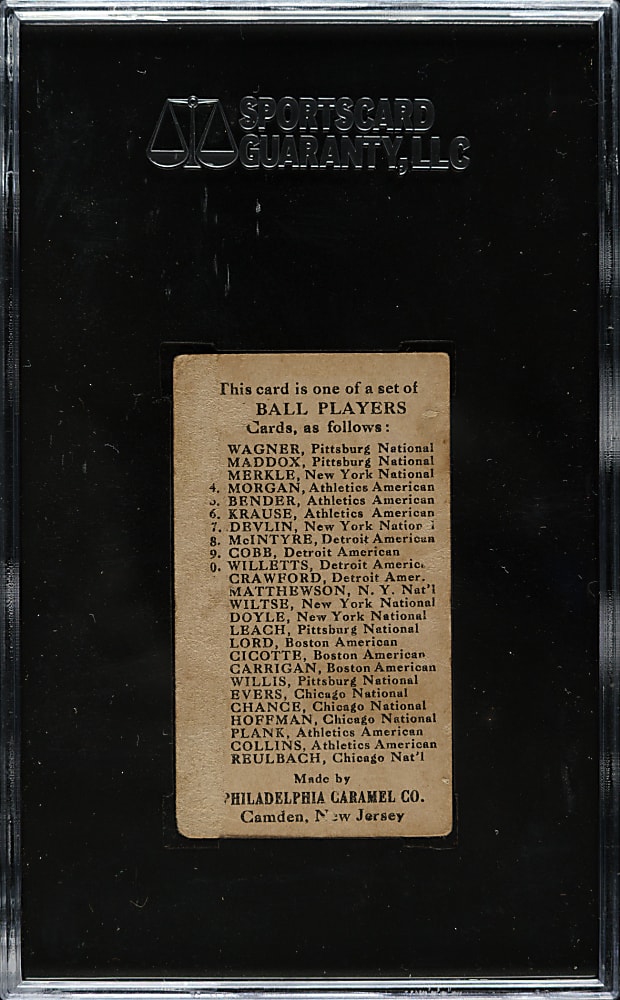 SPORTSCARD
GUARANTY, LLC
This card is one of a set of
BALL PLAYERS
Cards, as follows:
WAGNER, Pittsburg National
MADDOX, Pittsburg National
MERKLE, New York National
4. MORGAN, Athletics American
5. BENDER, Athletics American
6. KRAUSE, Athletics American
7. DEVLIN, New York National
8. McINTYRE, Detroit American
9. COBB, Detroit American
0. WILLETTS, Detroit Americ.
CRAWFORD, Detroit Amer.
MATTHEWSON, N. Y. Nat'l
WILTSE, New York National
DOYLE, New York National
LEACH, Pittsburg National
LORD, Boston American
CICOTTE, Boston American
CARRIGAN, Boston American
WILLIS, Pittsburg National
EVERS, Chicago National
CHANCE, Chicago National
HOFFMAN, Chicago National
PLANK, Athletics American
COLLINS, Athletics American
REULBACH, Chicago Nat'l
Made by
PHILADELPHIA CARAMEL CO.
Camden, New Jersey